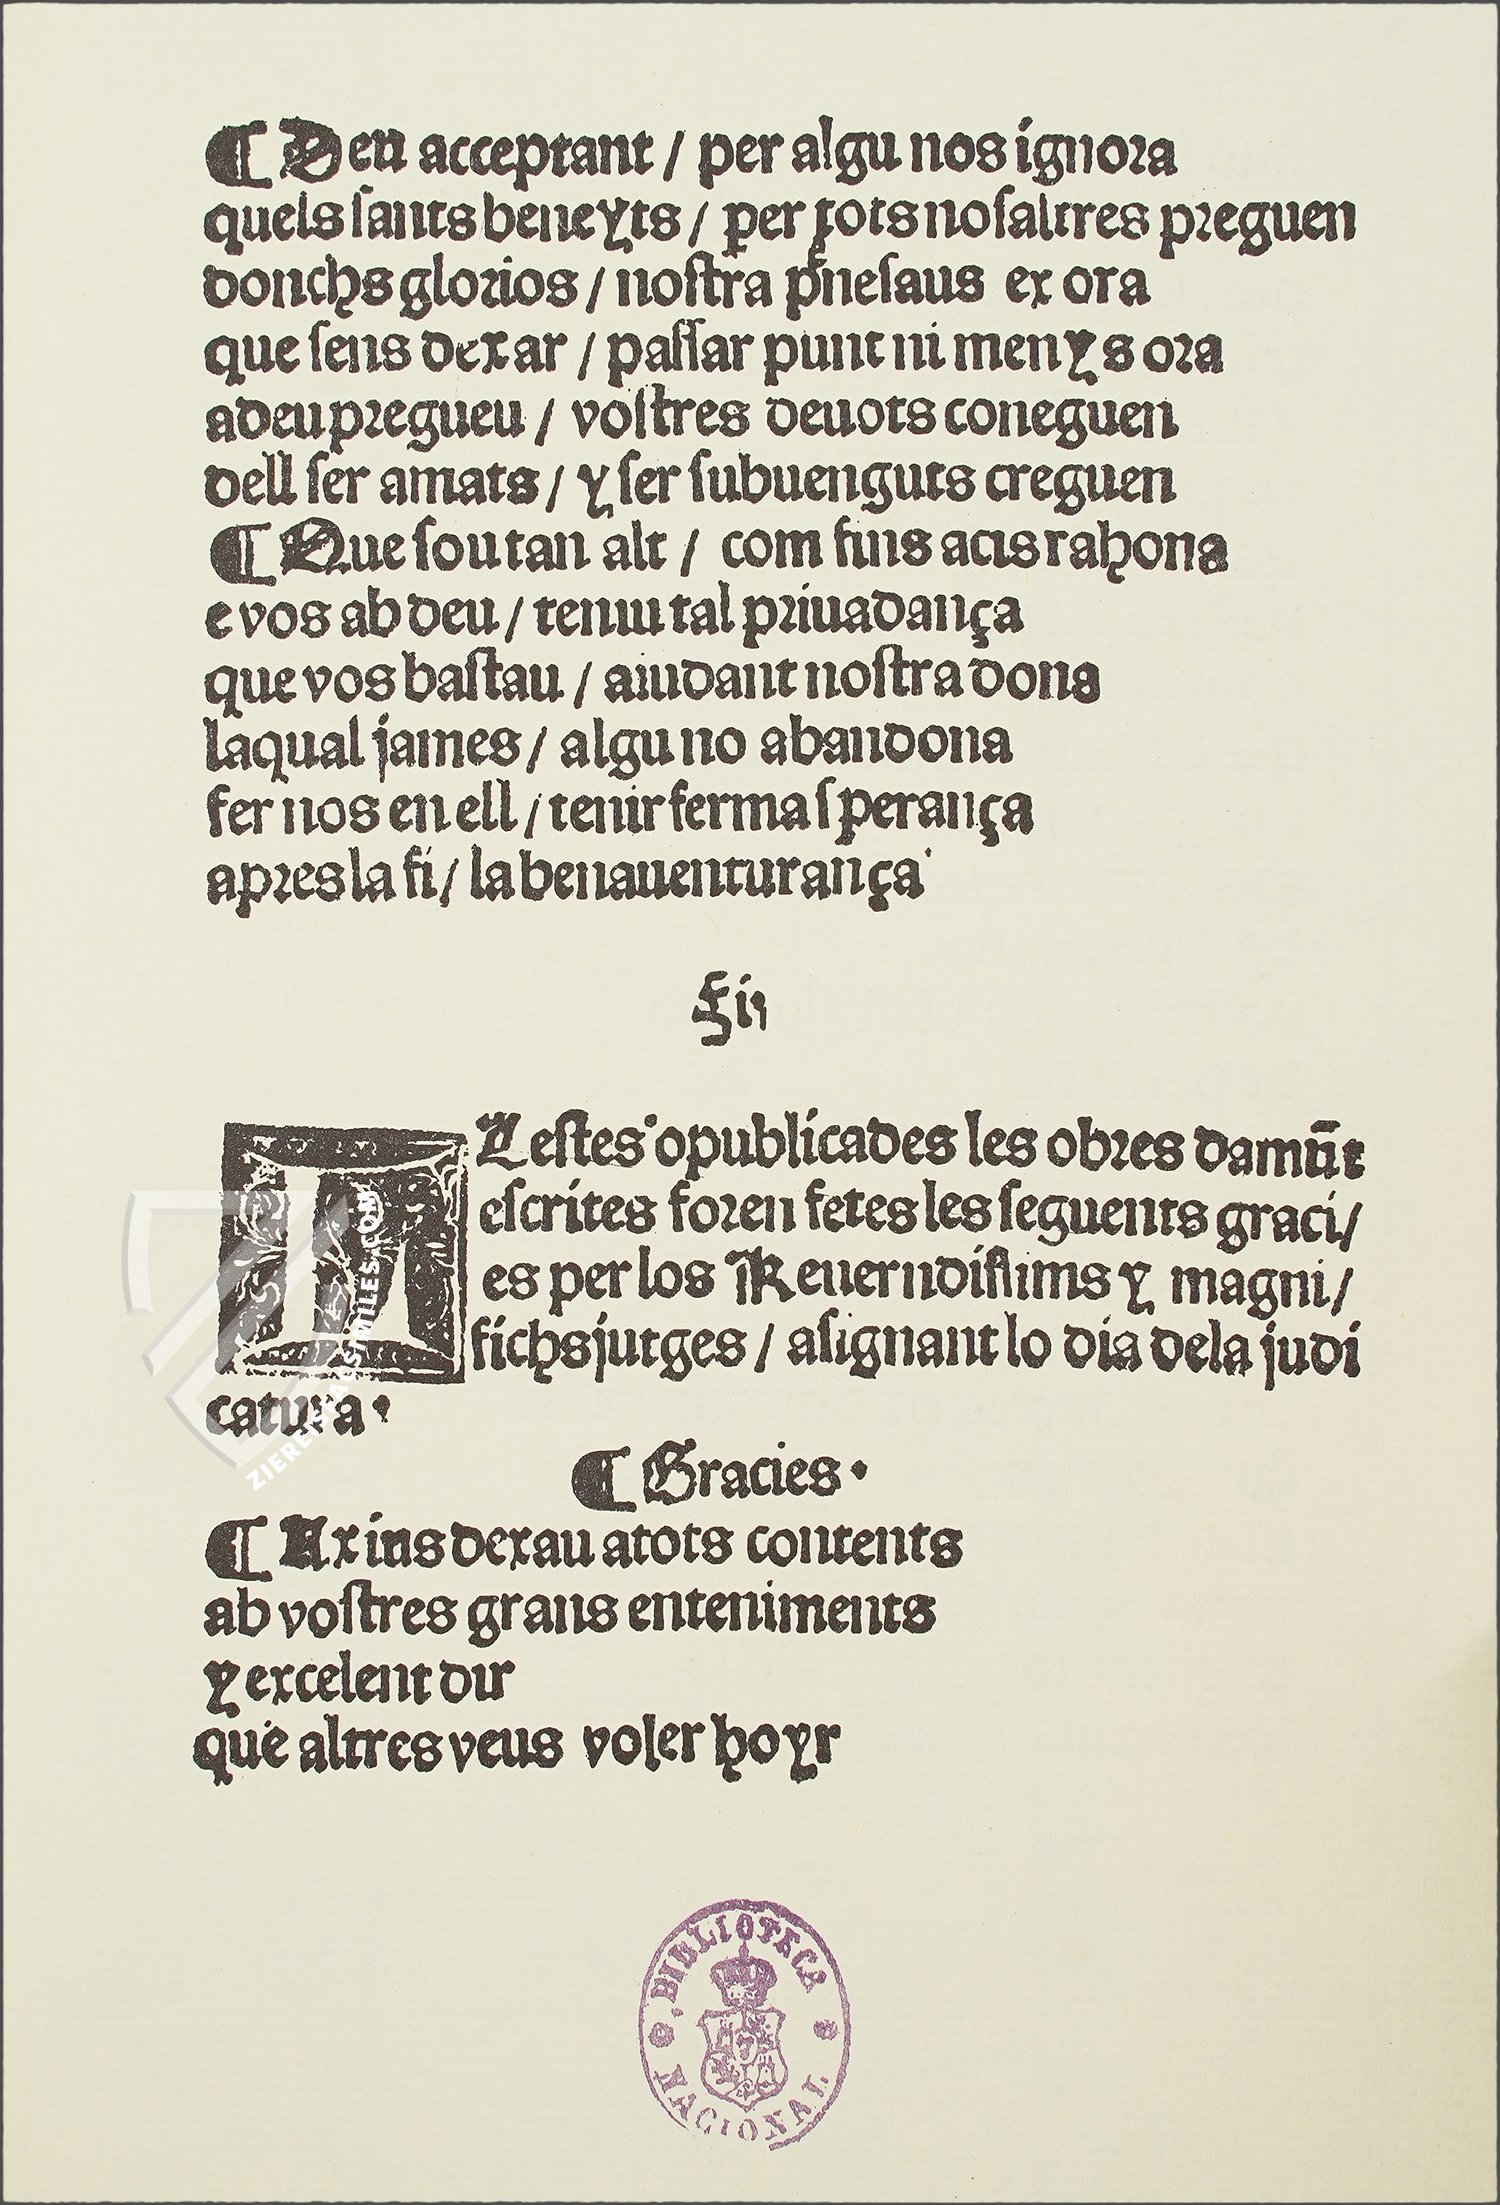 ¶ Deu acceptant / per algu nos ignora
quels sants beneyts / per tots nosaltres preguen
donchs glorios / nostra pñesaus ex ora
que sens dexar / passar punt ni menys ora
adeu pregueu / vostres deuots coneguen
dell ser amats / y ser subuenguts creguen
¶ Que sou tan alt / com fins acis rahona
e vos ab deu / teniu tal priuadança
que vos bastau / aiudant nostra dona
laqual james / algu no abandona
fer nos en ell / tenir ferma sperança
apres la fi / la benauenturança
Fin
Lestes opublicades les obres damũt
escrites foren fetes les seguents graci/
es per los Reuerndissims y magni/
fichs jutges / asignant lo dia dela judi
catura.
¶ Gracies.
¶ Axins dexau atots contents
ab vostres grans enteniments
y excelent dir
que altres veus voler hoyr
BIBLIOTECA
NACIONAL
ZIEREIS FACSIMILES.COM